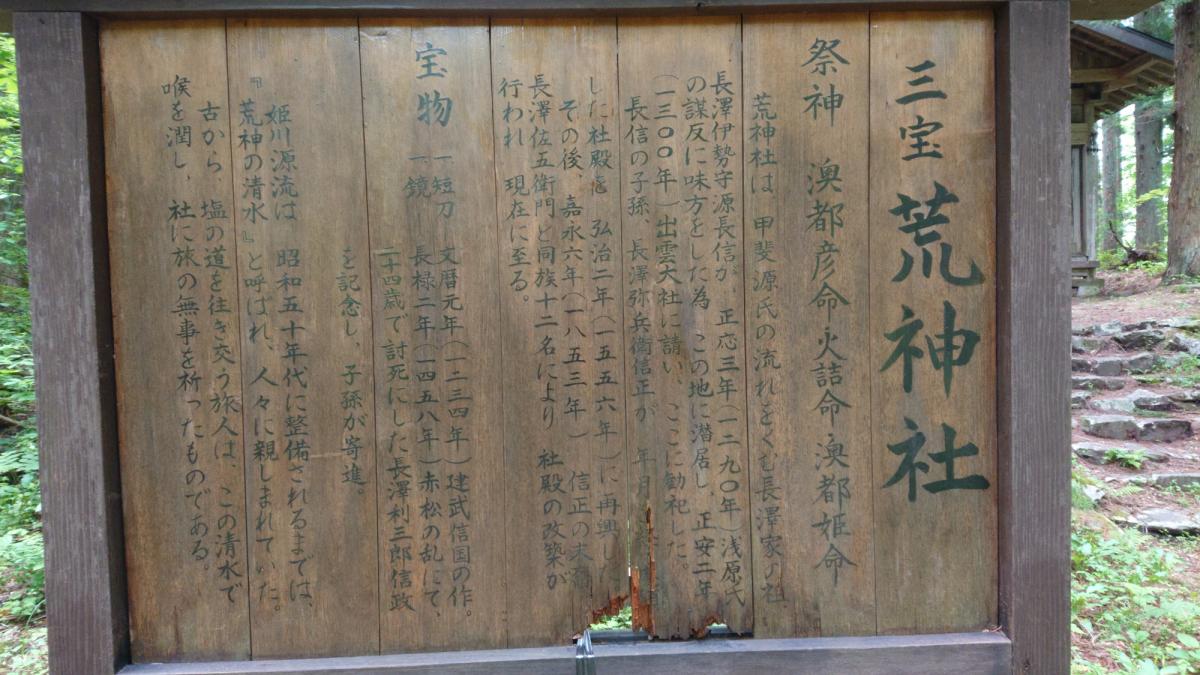 三宝荒神社
祭神 澳都彦命 火詰命 澳都姫命
荒神社は 甲斐源氏の流れをくむ長澤家の祖
長澤伊勢守源長信が、正応三年(一二九〇年)浅原氏
の謀反に味方をした為 この地に潜居し、正安二年
(一三〇〇年)出雲大社に請い、ここに勧祀した。
長信の子孫、長澤弥兵衛信正が 年月
した社殿を 弘治二年(一五五六年)に再興し
その後、嘉永六年(一八五三年) 信正の末裔
長澤佐五衛門と同族十二名により 社殿の改築が
行われ 現在に至る。
宝物 一短刀 文暦元年(一二三四年)建武信国の作。
一鏡 長禄二年(一四五八年)赤松の乱にて、
二十四歳で討死にした長澤利三郎信政
を記念し、子孫が寄進。
姫川源流は 昭和五十年代に整備されるまでは、
『荒神の清水』と呼ばれ、人々に親しまれていた。
古から、塩の道を往き交う旅人は、この清水で
喉を潤し、社に旅の無事を祈ったものである。